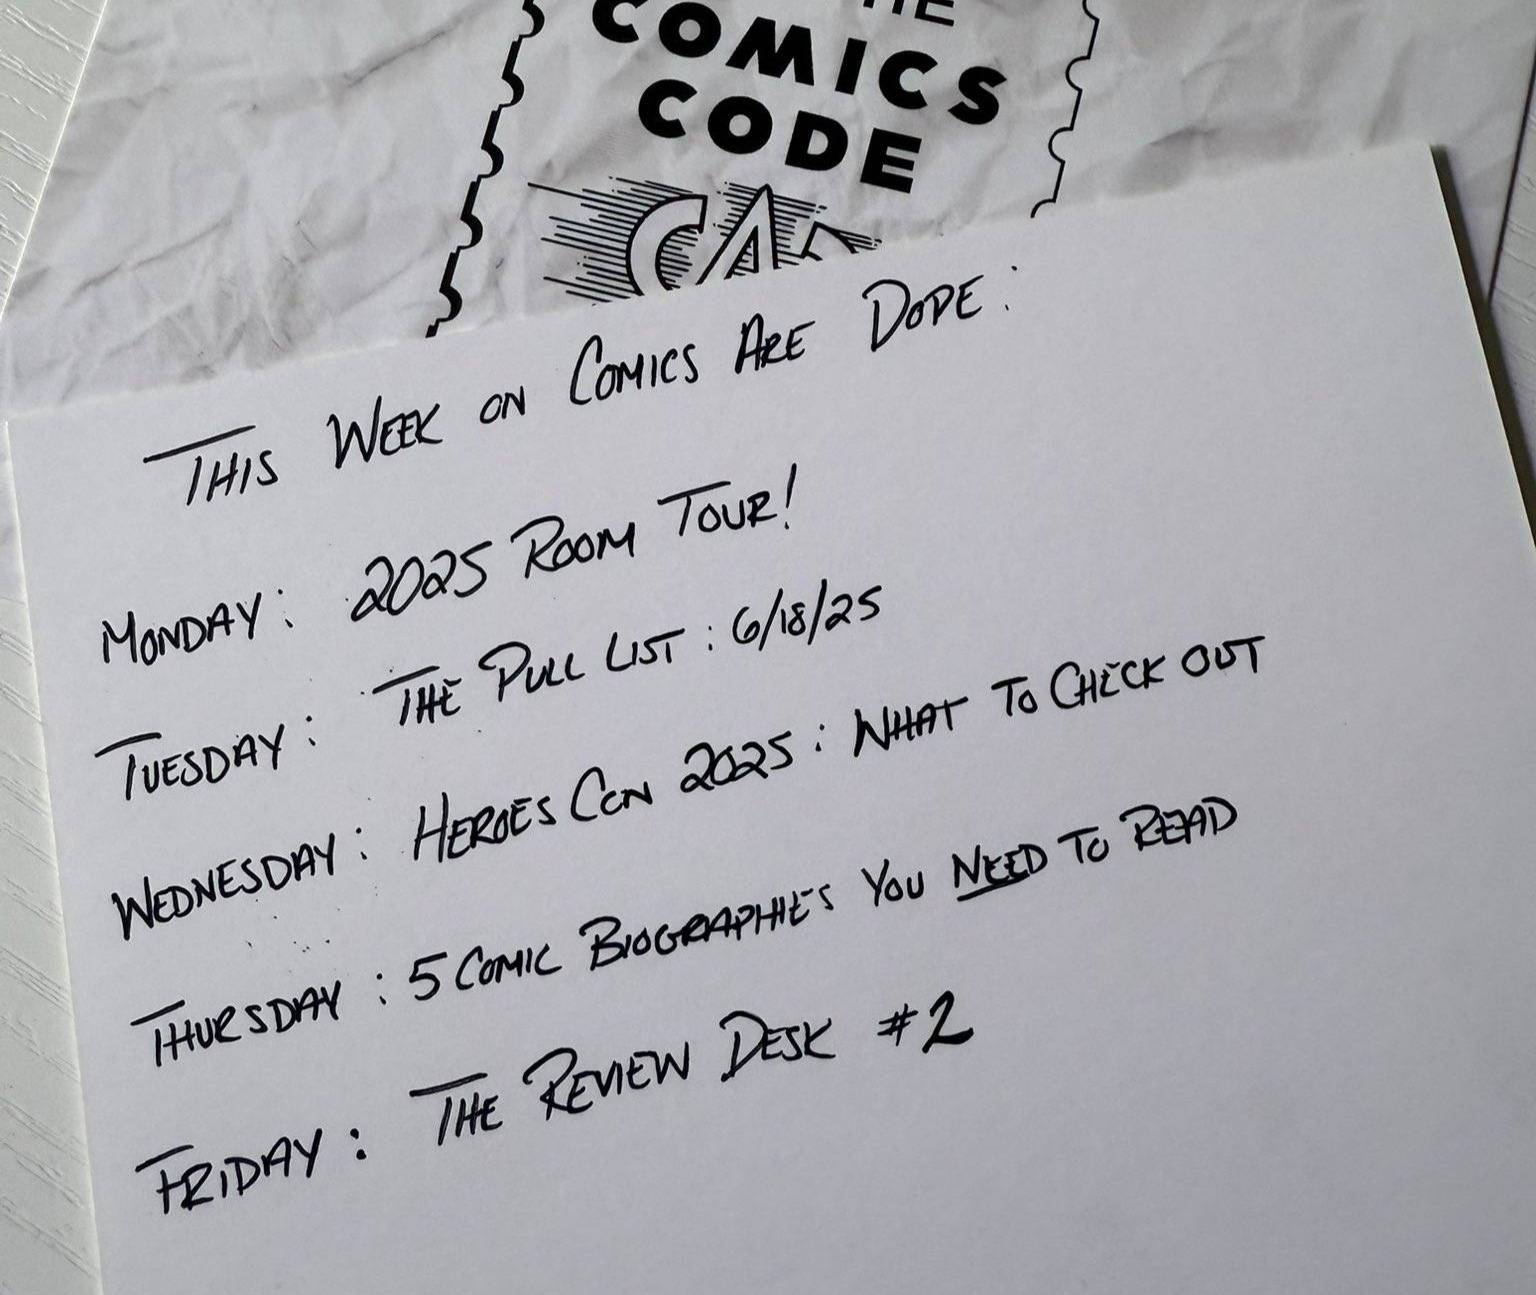 THE
COMICS
CODE
THIS WEEK ON COMICS ARE DOPE:
MONDAY: 2025 ROOM TOUR!
TUESDAY: THE PULL LIST: 6/18/25
WEDNESDAY: HEROES CON 2025: WHAT TO CHECK OUT
THURSDAY: 5 COMIC BIOGRAPHIES YOU NEED TO READ
FRIDAY: THE REVIEW DESK #2